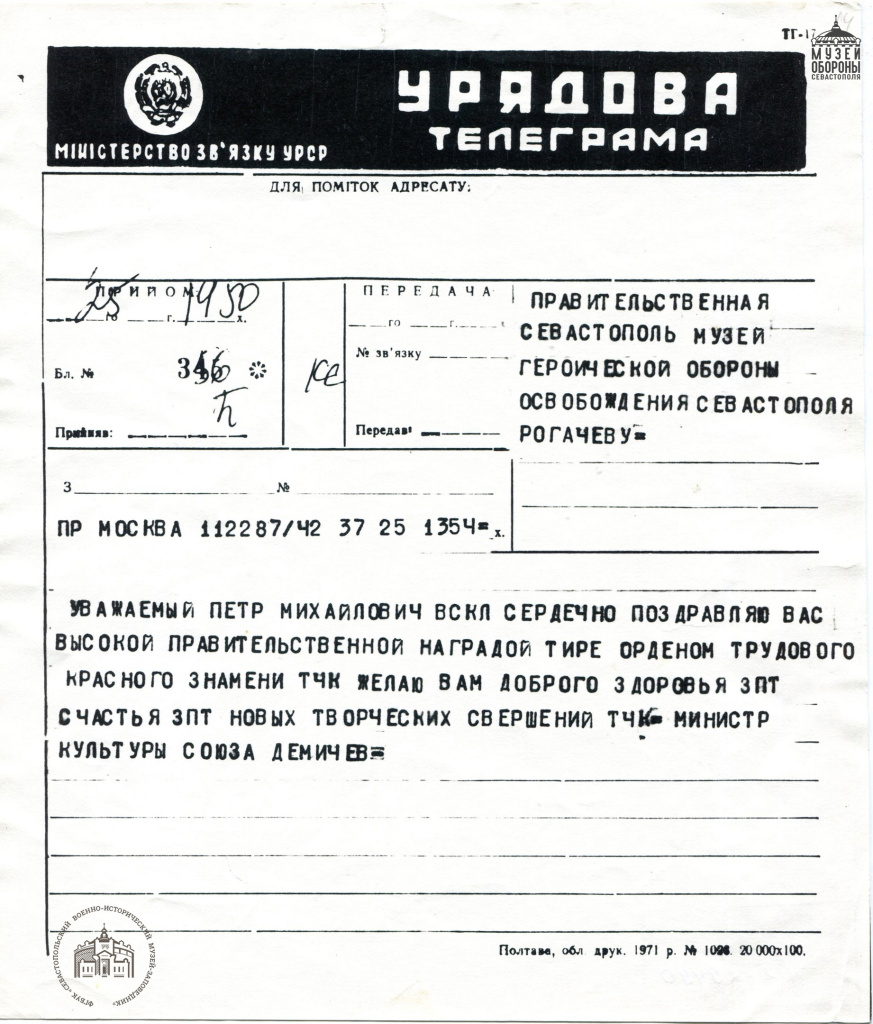 ТГ-17
МУЗЕЙ
ОБОРОНЫ
СЕВАСТОПОЛЯ
УРЯДОВА
ТЕЛЕГРАМА
МІНІСТЕРСТВО ЗВ'ЯЗКУ УРСР
ДЛЯ ПОМІТОК АДРЕСАТУ:
ПРИЙОМ
25 1450
го г. х.
Бл. №
Прийняв:
ПЕРЕДАЧА
го г. х.
№ зв'язку
Передав:
ПРАВИТЕЛЬСТВЕННАЯ
СЕВАСТОПОЛЬ МУЗЕЙ
ГЕРОИЧЕСКОЙ ОБОРОНЫ
ОСВОБОЖДЕНИЯ СЕВАСТОПОЛЯ
РОГАЧЕВУ=
З №
ПР МОСКВА 112287/Ч2 37 25 135Ч= х.
УВАЖАЕМЫЙ ПЕТР МИХАЙЛОВИЧ ВСКЛ СЕРДЕЧНО ПОЗДРАВЛЯЮ ВАС
ВЫСОКОЙ ПРАВИТЕЛЬСТВЕННОЙ НАГРАДОЙ ТИРЕ ОРДЕНОМ ТРУДОВОГО
КРАСНОГО ЗНАМЕНИ ТЧК ЖЕЛАЮ ВАМ ДОБРОГО ЗДОРОВЬЯ ЗПТ
СЧАСТЬЯ ЗПТ НОВЫХ ТВОРЧЕСКИХ СВЕРШЕНИЙ ТЧК= МИНИСТР
КУЛЬТУРЫ СОЮЗА ДЕМИЧЕВ=
Полтава, обл. друк. 1971 р. № 20 000x100.
ФГБУК «СЕВАСТОПОЛЬСКИЙ ВОЕННО-ИСТОРИЧЕСКИЙ МУЗЕЙ-ЗАПОВЕДНИК»